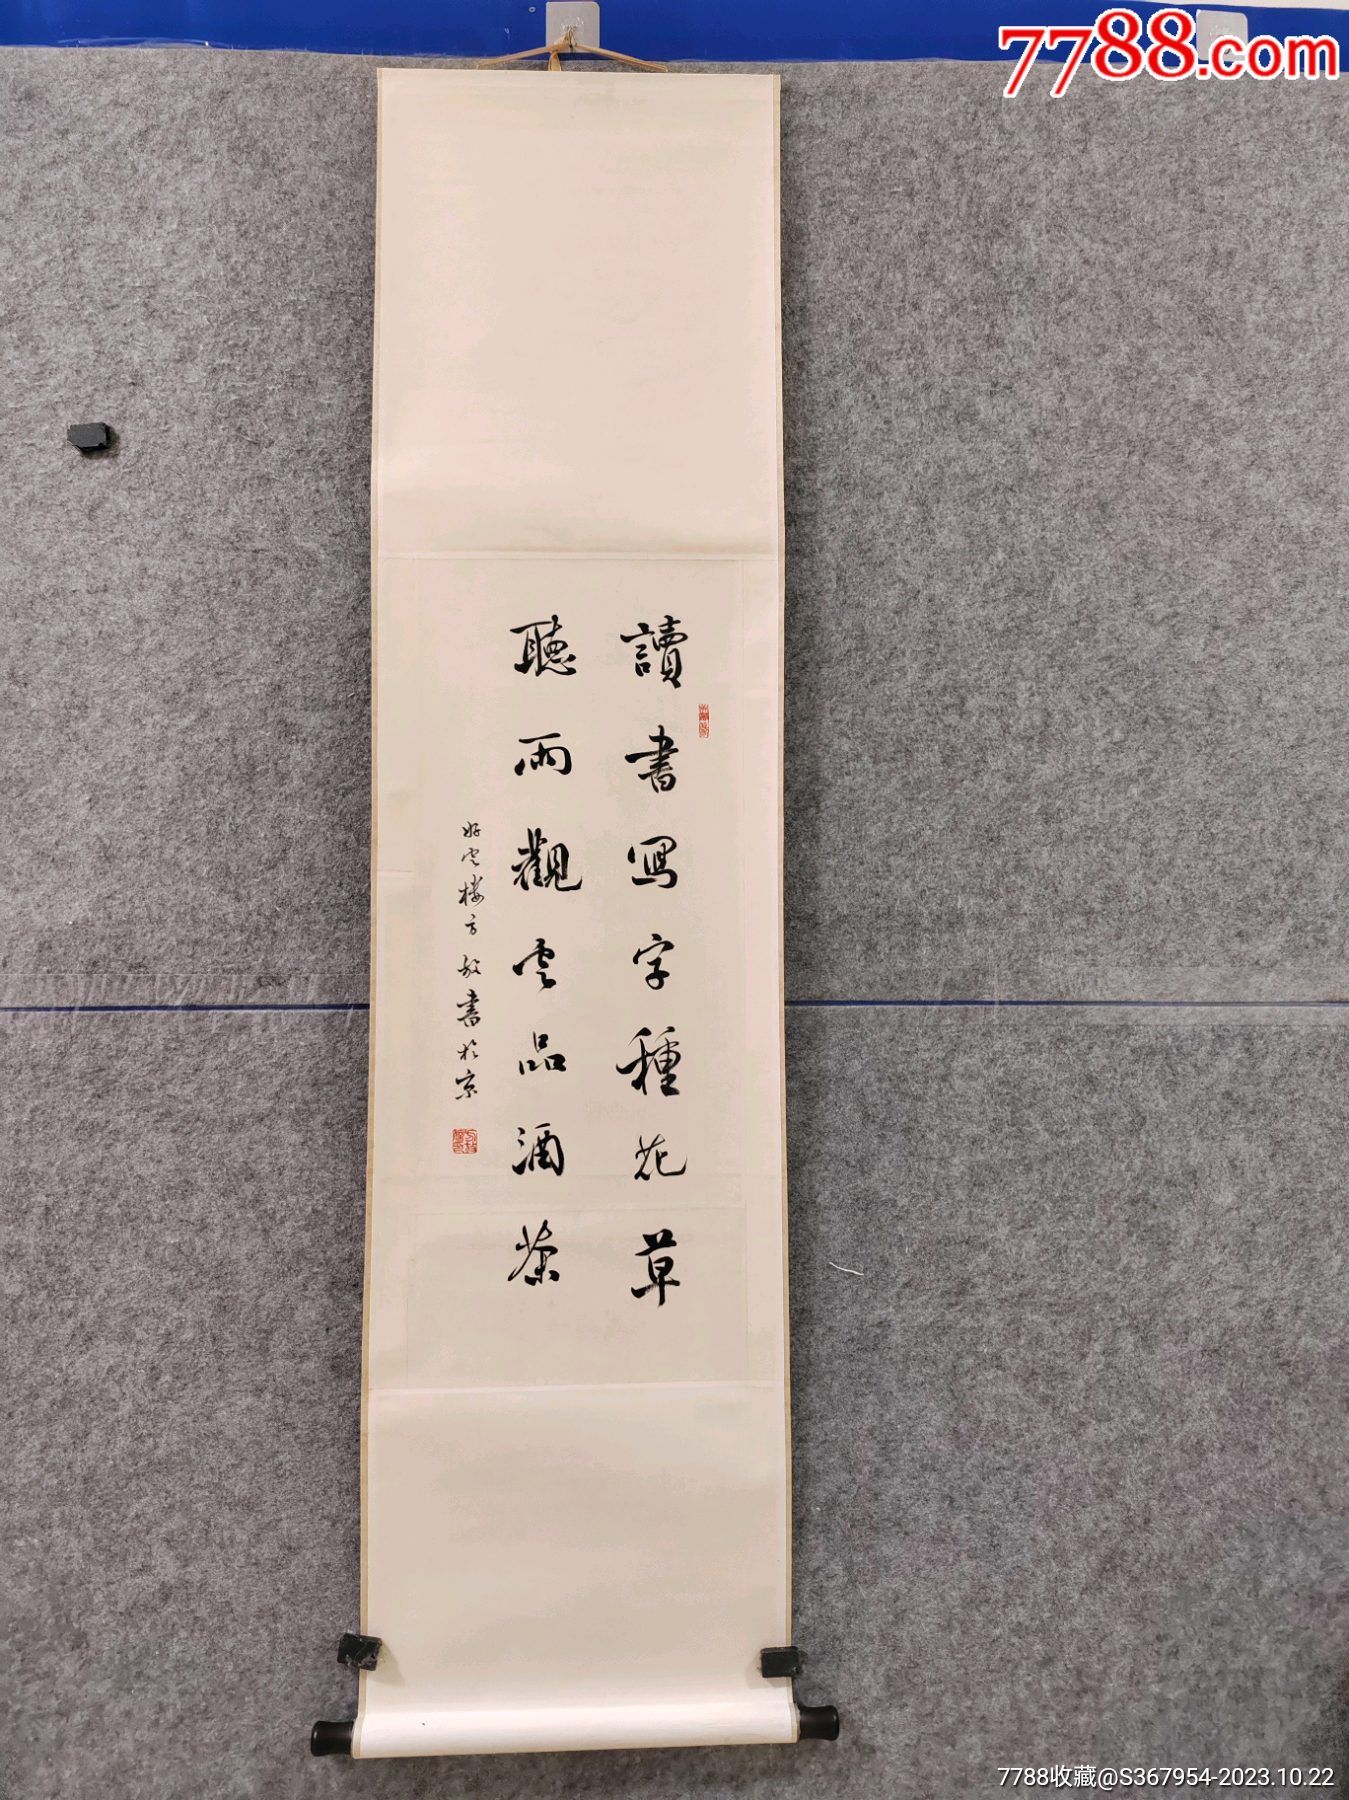 7788.com
讀書寫字種花草
聽雨觀雲品酒茶
好雲樓方敏書於京
7788收藏@S367954-2023.10.22